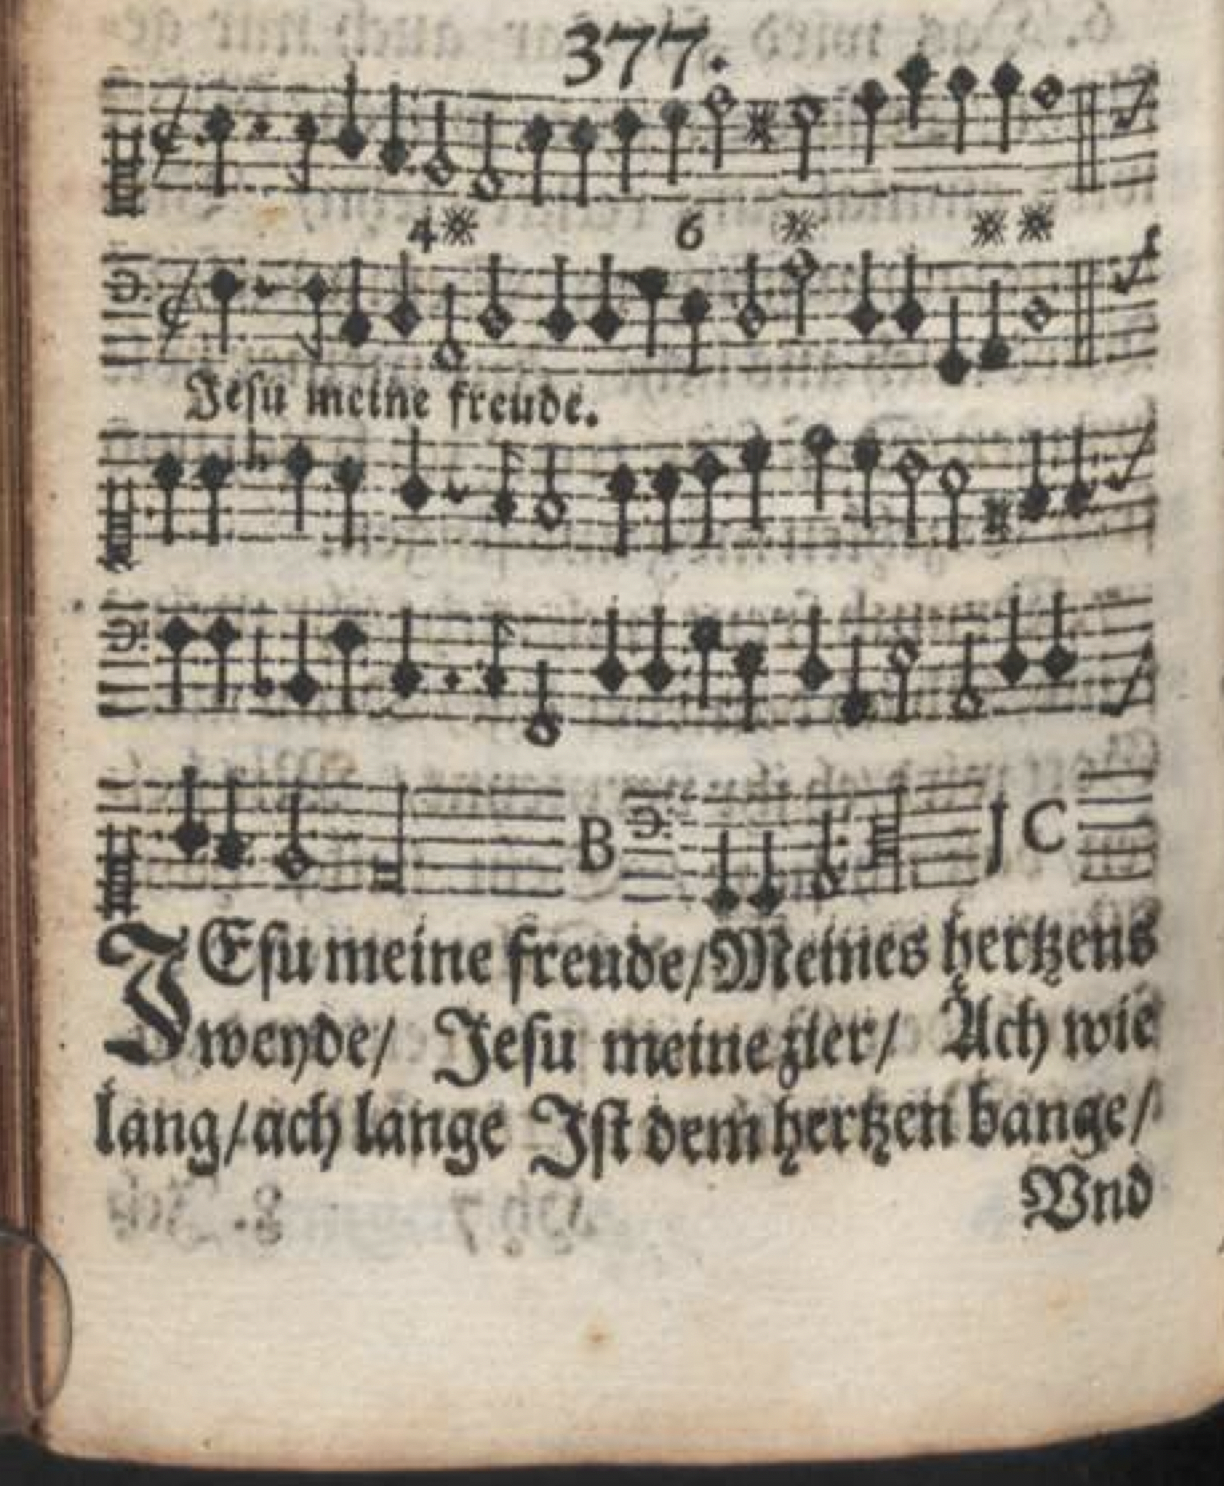 377.
4※ 6 ※ ※※
Jeſu meine freude.
B J C
JEſu meine freude/Meines hertzens
weyde/ Jeſu meine zier/ Ach wie
lang/ach lange Jſt dem hertzen bange/
Vnd